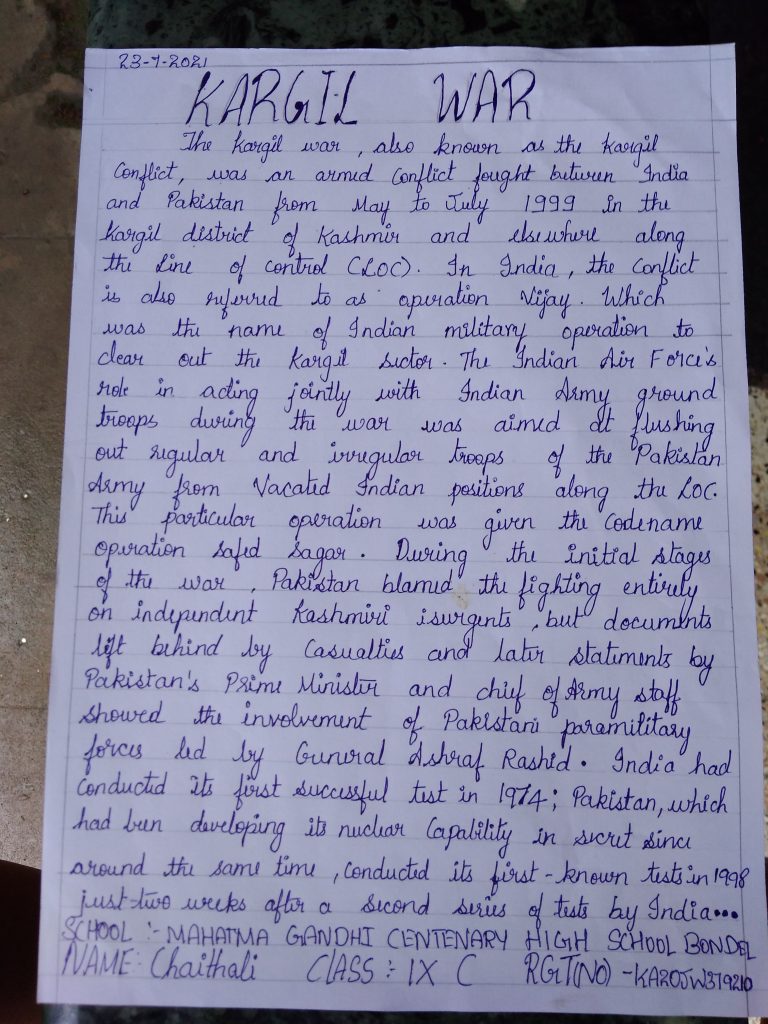 23-7-2021
KARGIL WAR
The Kargil war, also known as the Kargil
Conflict, was an armed Conflict fought between India
and Pakistan from May to July 1999 in the
Kargil district of Kashmir and elsewhere along
the Line of control (LOC). In India, the Conflict
is also referred to as operation Vijay. Which
was the name of Indian military operation to
clear out the Kargil sector. The Indian Air Force's
role in acting jointly with Indian Army ground
troops during the war was aimed at flushing
out regular and irregular troops of the Pakistan
Army from Vacated Indian positions along the LOC.
This particular operation was given the Codename
operation Safed Sagar. During the initial stages
of the war, Pakistan blamed the fighting entirely
on independent Kashmiri isurgents, but documents
left behind by Casualties and later statements by
Pakistan's Prime Minister and chief of Army staff
showed the involvement of Pakistani paramilitary
forces led by General Ashraf Rashid. India had
Conducted its first successful test in 1974; Pakistan, which
had been developing its nuclear Capability in secret since
around the same time, Conducted its first-known tests in 1998
just-two weeks after a second series of tests by India...
SCHOOL :- MAHATMA GANDHI CENTENARY HIGH SCHOOL BONDEL
NAME: Chaithali CLASS :- IX C RGT(NO) -KA20JW379210